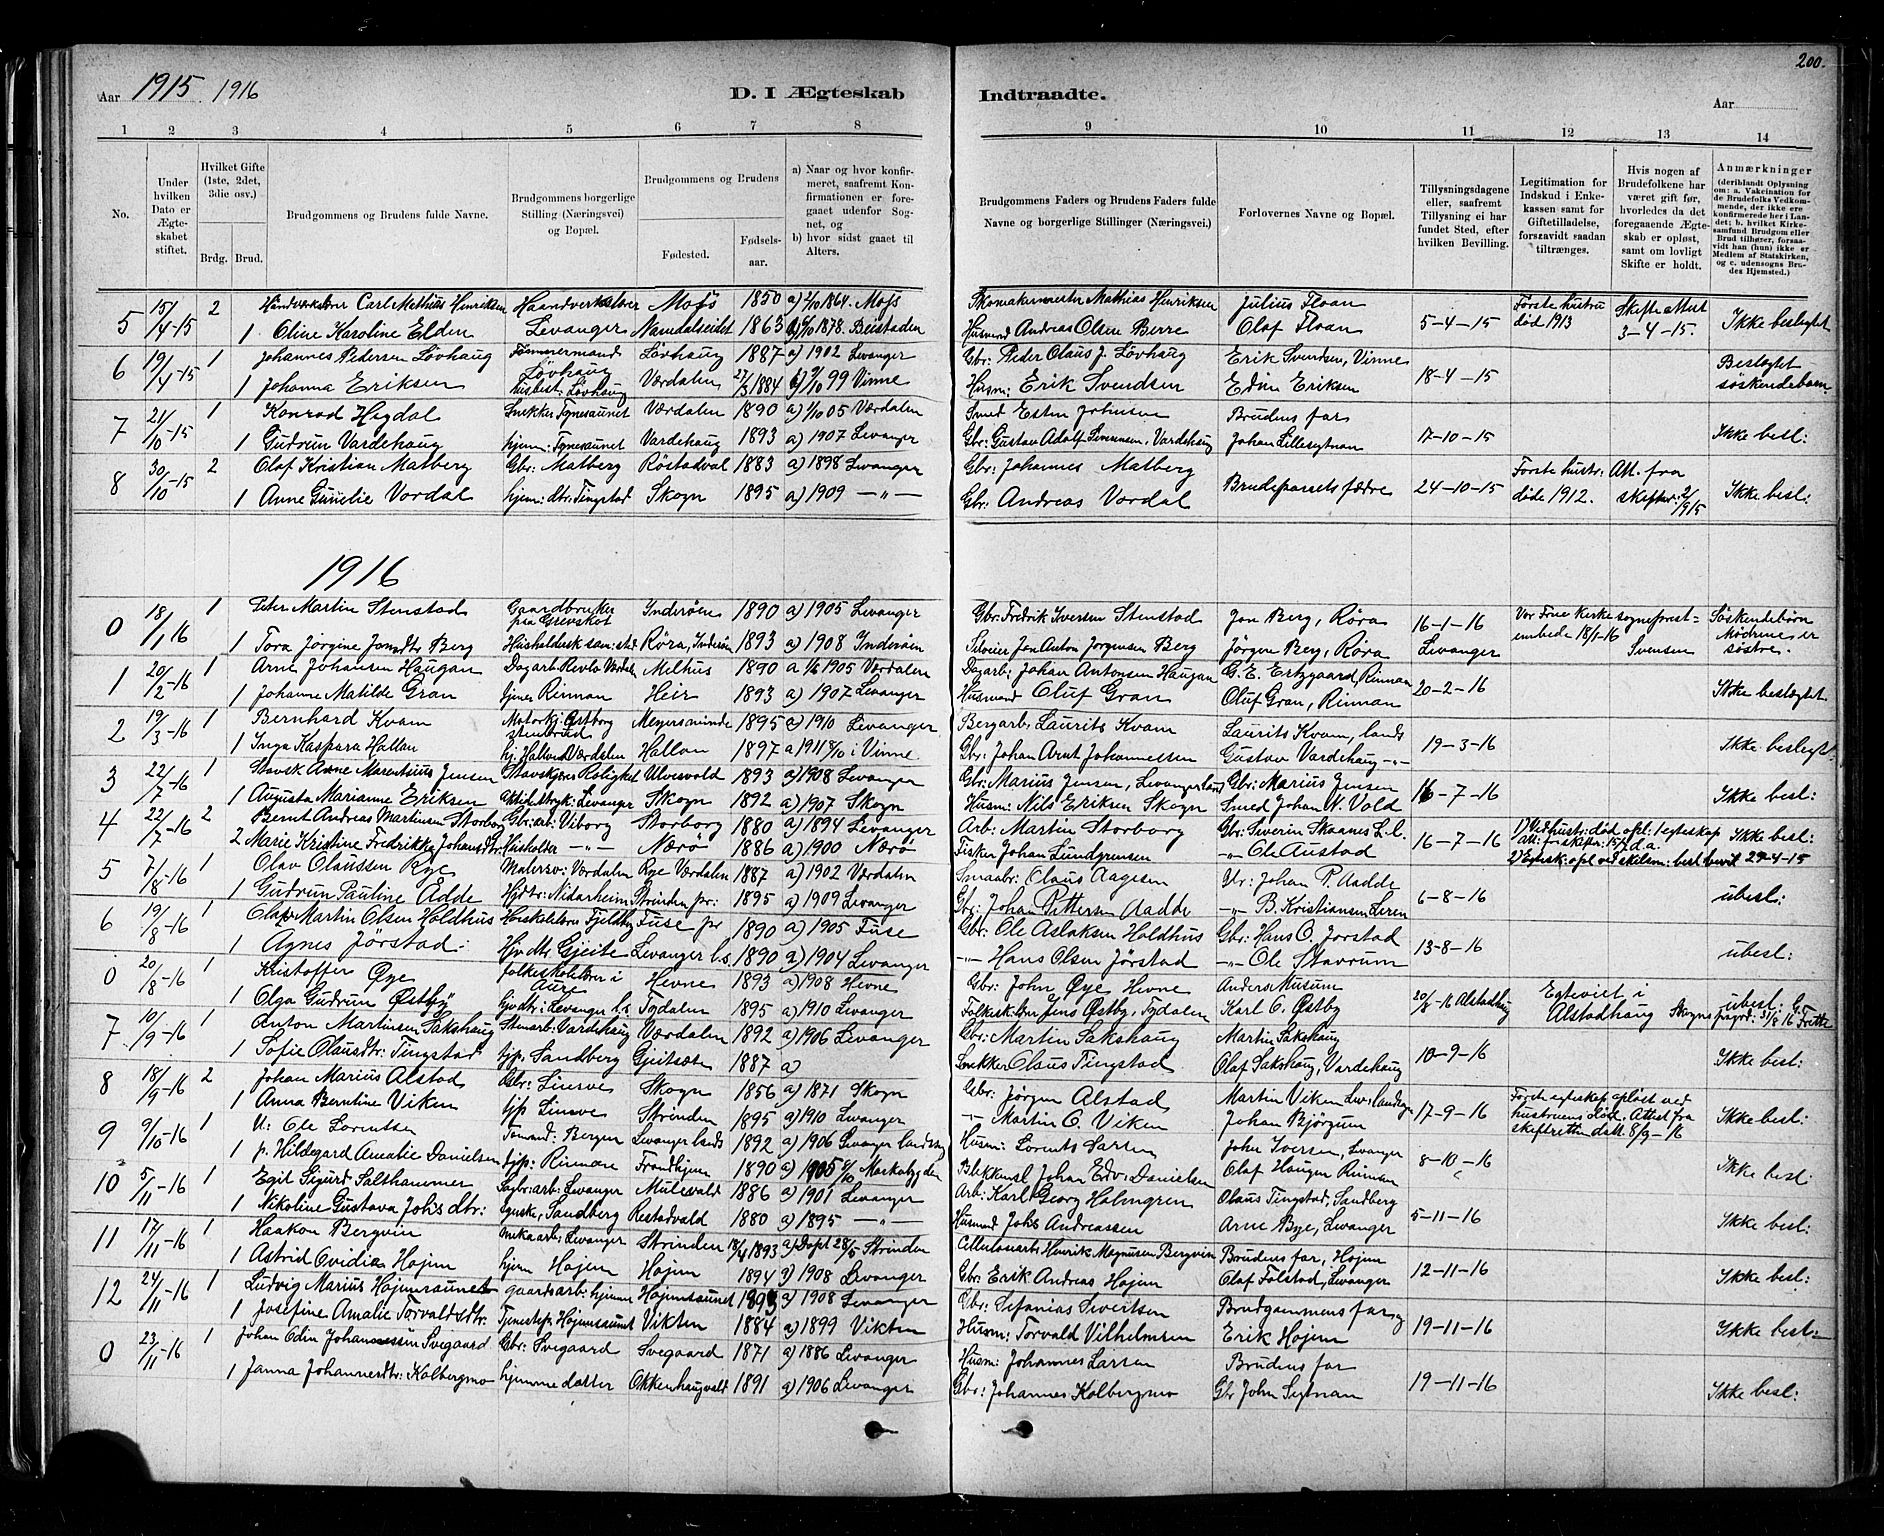 200.
Aar 1915. 1916 D. I Ægteskab Indtraadte. Aar
1 2 3 4 5 6 7 8 9 10 11 12 13 14
No.
Under hvilken Dato er Ægteskabet stiftet.
Hvilket Gifte (1ste, 2det, 3die osv.)
Brdg. Brud.
Brudgommens og Brudens fulde Navne.
Brudgommens borgerlige Stilling (Næringsvei) og Bopæl.
Brudgommens og Brudens
Fødested. Fødselsaar.
a) Naar og hvor konfirmeret, saafremt Konfirmationen er foregaaet udenfor Sognet, og
b) hvor sidst gaaet til Alters.
Brudgommens Faders og Brudens Faders fulde Navne og borgerlige Stillinger (Næringsvei.)
Forlovernes Navne og Bopæl.
Tillysningsdagene eller, saafremt Tillysning ei har fundet Sted, efter hvilken Bevilling.
Legitimation for Indskud i Enkekassen samt for Giftetilladelse, forsaavidt saadan tiltrænges.
Hvis nogen af Brudefolkene har været gift før, hvorledes da det foregaaende Ægteskab er opløst, samt om lovligt Skifte er holdt.
Anmærkninger (deriblandt Oplysning om: a. Vakcination for de Brudefolks Vedkommende, der ikke ere konfirmerede her i Landet; b. hvilket Kirkesamfund Brudgom eller Brud tilhører, forsaavidt han (hun) ikke er Medlem af Statskirken, og c. udensogns Brudes Hjemsted.)
5 15/4-15 2 Haandverksdrer Carl Mathius Henriksen Haandverksdrer Moss 1850 a) 2/10 1864. Moss Mathias Henriksen Julius Floan 5-4-15 Første hustru død 1913 Skifte Attest 3-4-15. Ikke beslegtet
1 Oline Karoline Elden Levanger Namdalseidet 1863 1878. Beitstaden Husmand Andreas Olsen Berre Olaf Floan
6 19/4-15 1 Johannes Pedersen Lövhaug Tømmermand Lövhaug Lövhaug 1887 a) 1902 Levanger Gbr: Peder Claus J. Lövhaug Erik Svendsen, Vinne 18-4-15 Beslegtet søskendebarn
1 Johanna Eriksen husbest: Lövhaug Værdalen 27/3 1884 99 Vinne Husm: Erik Svendsen Edin Eriksen
7 21/10-15 1 Konrad Hegdal Snekker Værdalen 1890 a) 1/10 05 Værdalen Smed Esten Johnsen Brudens far 17-10-15 Ikke besl:
1 Gudrun Vardehaug hjem: Vardehaug 1893 a) 1907 Levanger Gbr: Gustav Adolf Vardehaug Johan Lillesegtnan
8 30/10-15 2 Olaf Kristian Matberg Gbr: Matberg Röstadval 1883 a) 1898 Levanger Gbr: Johannes Matberg Brudeparrets fædre 24-10-15 Første hustr: døde 1912. Att. fra skifter: 2/9 15 Ikke besl:
1 Anne Gurielie Vordal hjem: dtr: Tingstad Skogn 1895 a) 1909 -"- Gbr: Andreas Vordal
1916
0 18/1 16 1 Peter Martin Stenstad Gaardbruker fra Grevskot Inderöen 1890 a) 1905 Levanger Gbr: Fredrik Iversen Stenstad Jon Berg, Röra 16-1-16 Levanger Vor Frue Kirke sogneprestembede 18/1-16 Svensen Søskendebörn Mødrene er søstre.
1 Tora Jørgine Jonsdtr Berg Röra, Inderöen 1893 a) 1908 Inderöen Jon Anton Jörgensen Berg Jörgen Berg, Röra
1 20/2-16 1 Arne Johansen Haugan Dagarb. Værdal Melhus 1890 a 1905 Værdalen Dagarb: Johan Antonsen Haugan G. E. Ertzgaard, Rinnan 20-2-16 Ikke beslegtet
1 Johanne Matilde Gran Rinnan Heir 1893 a) 1907 Levanger Husmand Oluf Gran Oluf Gran, Rinnan
2 19/3-16 1 Bernhard Kvam Motorkj: Östborg stenbrud Meyersminde 1895 a) 1910 Levanger Bergarb. Laurits Kvam Laurits Kvam, lands 19-3-16 Ikke beslegt.
1 Inga Kaspara Hallan hj. Værdalen Hallan 1897 a 1911 i Vinne Gbr. Johan Arnt Johannessen Gustav Vardehaug -"-
3 22/7-16 1 Arne Marentius Jensen Ulvesvold 1893 a) 1908 Levanger Gbr: Marius Jensen, Levangerland Gbr: Marius Jensen 16-7-16 Ikke besl:
1 Augusta Marianne Eriksen Levanger Skogn 1892 a) 1907 Skogn Husm: Nils Eriksen Skogn Smed Johan N. Vold
4 22/7-16 2 Bernt Andreas Martinsen Storborg Gbr: arb: Viborg Storborg 1880 a) 1894 Levanger Arb: Martin Storborg Gbr: Severin Skaanes L.l. 16-7-16 1) Ved hustr: död opl: 1 egteskap Att: fr skifter: 15/7 d.a. Ikke besl:
2 Marie Kristine Fredrikke Johansdtr: Husholder -"- Nærö 1886 a) 1900 Nærö Fisker Johan Lundgrensen -"- Ole Austad 2) Egtesk: opl ved skilsm: best bevil 29-4-15
5 7/8-16 1 Olav Olaussen Rye Malersv: Værdalen Rye Værdalen 1887 a) 1902 Værdalen Smaabr: Claus Aagesen Ur: Johan P. Aadde 6-8-16 ubesl:
1 Gudrun Pauline Adde Hjdtr: Nidarheim Strinden pr: 1895 a) 1909 Levanger Gbr: Johan Pettersen Aadde -"- B. Kristiansen Leren
6 19/8-16 1 Olaf Martin Olsen Holdhus Fuse pr 1890 a) 1905 Fuse Gbr: Ole Aslaksen Holdhus Gbr: Hans O. Jørstad 13-8-16 ubesl:
1 Agnes Jörstad: Hjv dtr Gjeite Levanger l.s. 1890 a) 1904 Levanger -"- Hans Olsen Jörstad -"- Ole Stavrum
0 20/8-16 1 Kristoffer Øye folkeskolelærer i Aure Hevne 1893 a) 1908 Hevne Gbr: John Øye Hevne Anders Musum 20/8-16 Alstadhaug Egteviet i Alstadhaug Skogns prgrd: 31/8 16 ubesl: G. Fritte
1 Olga Gudrun Østby hjvdtr: Levanger l.s Tydalen 1895 a) 1910 Levanger Folkesk: lær Jens Østby, Tydalen Karl O. Østby
7 10/9-16 1 Anton Martinsen Sakshaug Stenarb: Vardehaug Værdalen 1892 a) 1906 Levanger Gbr: Martin Sakshaug Martin Sakshaug 10-9-16 Ikke besl:
1 Sofie Olausdtr: Tingstad tjp. Sandberg 1887 a) Snekker Claus Tingstad Olaf Sakshaug, Vardehaug
8 18/9-16 2 Johan Marius Alstad Gbr: Linsve Skogn 1856 a) 1871 Skogn Gbr. Jörgen Alstad Martin Viken Lev: landsogn 17-9-16 Første egteskap opløst ved hustruens død. Attst fra skifteretten dat: 8/9-16 Ikke besl:
1 Anna Berntine Viken tjp Linsve Strinden 1895 a) 1910 Levanger -"- Martin O. Viken Johan Bjørgum
9 9/10-16 1 U: Ole Lorntsen Bergen Levanger lands 1892 a) 1906 Levanger landsog Husm: Lorents Larsen John Iversen, Levanger 8-10-16 Ikke besl:
1 p. Hildegard Amalie Danielsen tjp: Rinnan Trondhjem 1890 a) 1905 Blikkensl Johan Edv: Danielsen Olaf Haugen Rinnan
10 5/11-16 1 Egil Sigurd Salthammer Sagbr: arb: Levanger Mulesvald 1886 a) 1901 Levanger Arb: Karl Georg Holmgren Olaus Tingstad, Sandberg 5-11-16 Ikke besl:
1 Nikoline Gustava Johs dtr: Sandberg Röstadvald 1880 a) 1895 -"- Husmand Johs Andreassen Arne Bye, Levanger
11 17/11-16 1 Haakon Bergvin Levanger Strinden 18/4 1893 a) Döpt 28/5 Strinden Cellulosearb: Henrik Magnusen Bergvin Brudens far, Hojem 12-11-16 Ikke besl:
1 Astrid Ovidia Hojem hjem Hojem Hojem 1894 a) 1908 Levanger Gbr: Erik Andreas Hojem Olaf Folstad, Levanger
12 24/11-16 1 Ludvig Marius Hojemsaunet gaardsarb: hjemme Hojemsaunet a) 1908 Levanger Gbr: Sefanias Sivertsen Brudgommens far og 19-11-16 Ikke besl:
1 Josefine Amalie Torvaldsdtr. Tjenestep. Hojemsaunet Vikten 1884 a) 1899 Vikten Husm: Torvald Vilhelmsen Erik Hojem
0 23/11-16 1 Johan Odin Johannessen Svegaard Gbr: Svegaard Svegaard 1871 a) 1886 Levanger Husm: Johannes Larsen Brudens far 19-11-16 Ikke besl:
1 Janna Johannesdtr: Kolbergmo hjemme datter Okkenhaugvald 1891 a) 1906 Levanger Gbr: Johannes Kolbergmo Gbr John Segtnan